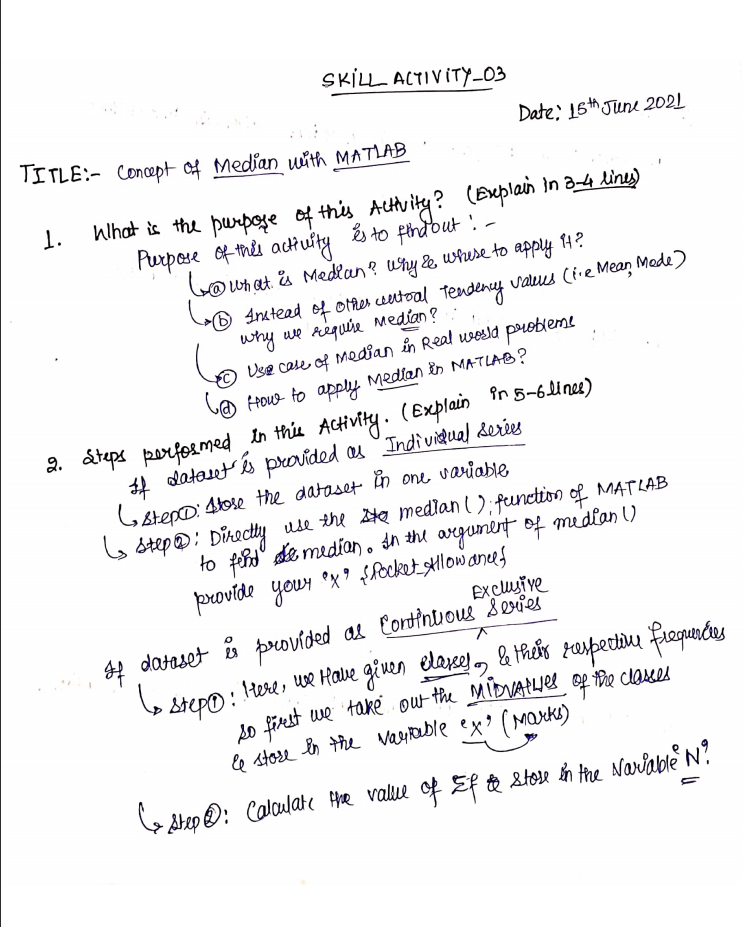 SKILL ACTIVITY_03
Date: 15th June 2021
TITLE:- Concept of Median with MATLAB
1. What is the purpose of this Activity? (Explain in 3-4 lines)
Purpose of this activity is to find out :-
(a) What is Median? Why & where to apply it?
(b) Instead of other central Tendency values (i.e Mean, Mode)
why we require Median?
(c) Use case of Median in Real world problems
(d) How to apply Median in MATLAB?
2. Steps performed in this Activity. (Explain in 5-6 lines)
If dataset is provided as Individual Series
Step①: Store the dataset in one variable
Step②: Directly use the median(); function of MATLAB
to find median. In the argument of median()
provide your 'x' {Pocket_Allowance}
Exclusive
If dataset is provided as Continuous Series
Step①: Here, we Have given classes, & their respective frequencies
so first we take out the MIDVALUES of the classes
& store in the variable 'x' (Marks)
Step②: Calculate the value of Σf & store in the variable 'N'.